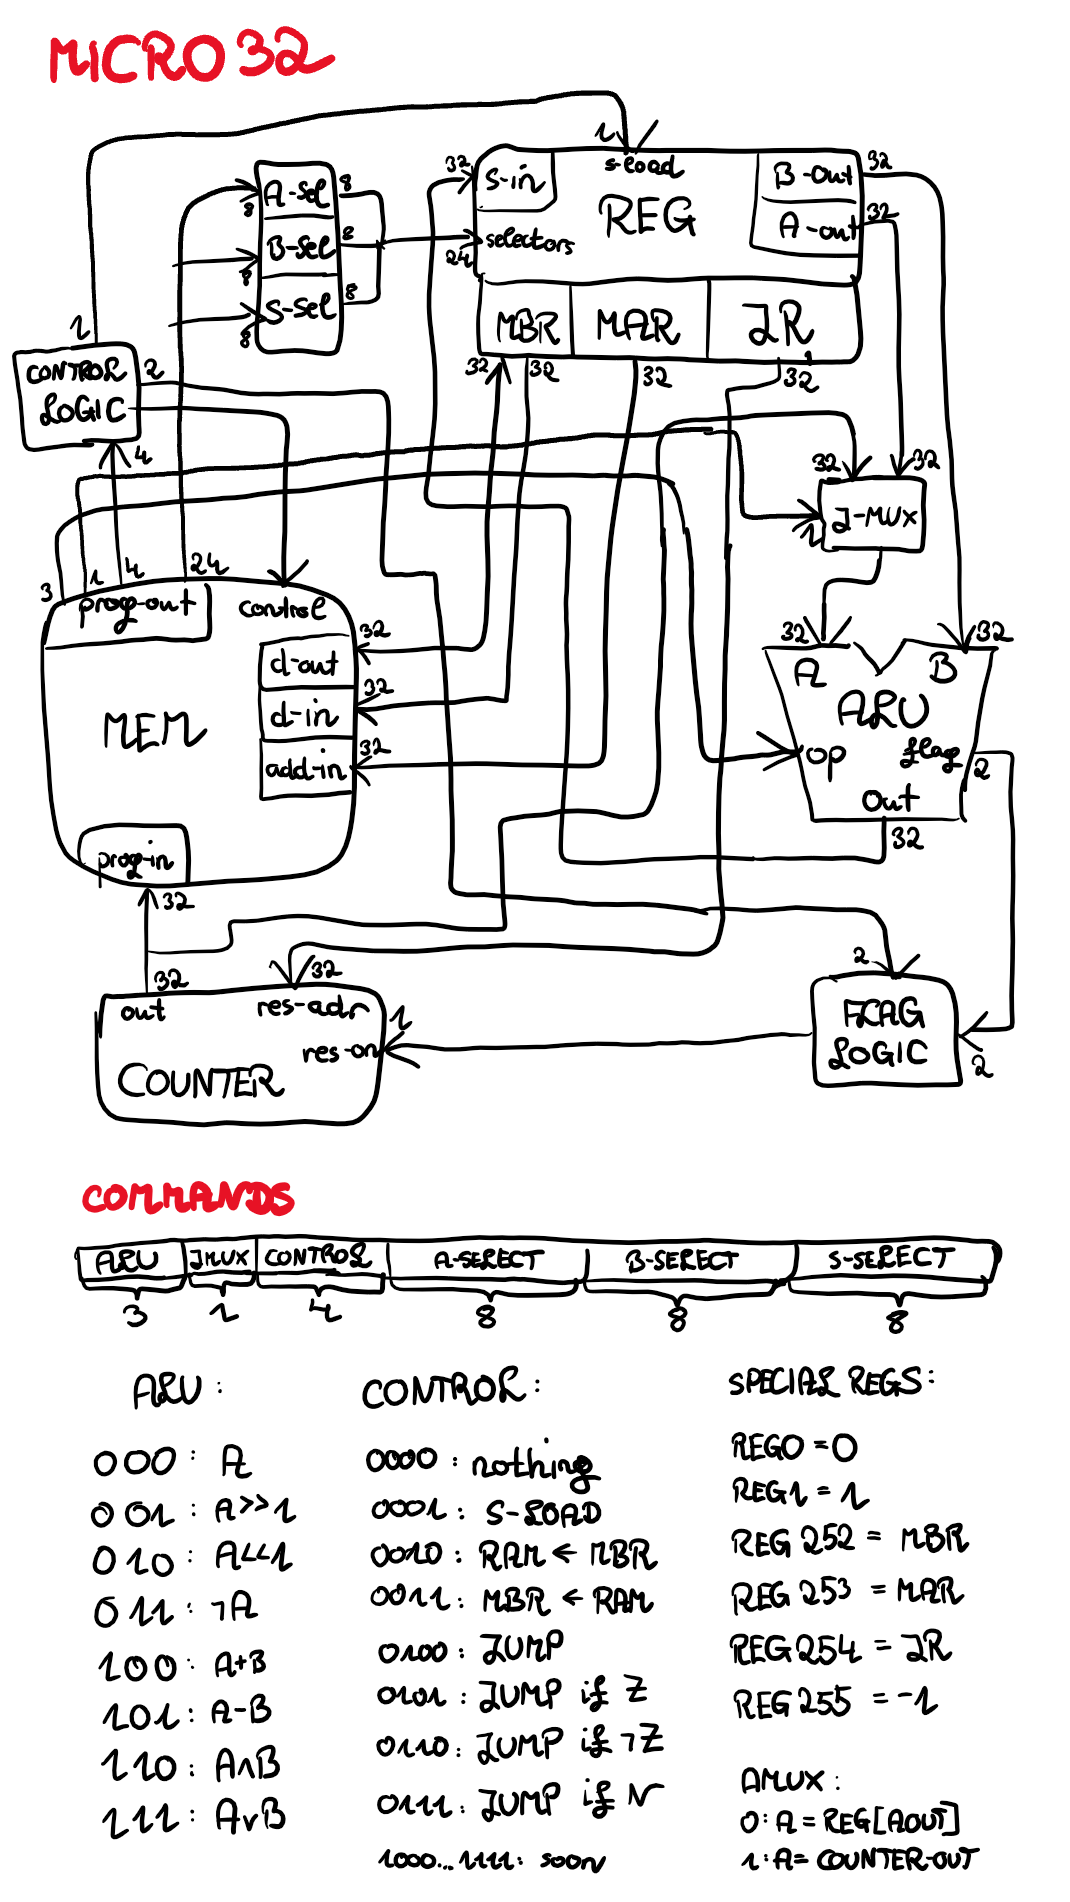 MICRO 32
1
A-Sel
B-Sel
S-Sel
8
8
8
8
8
8
32
S-in
s-load
REG
selectors
24
B-Out
A-out
32
32
MBR
MAR
JR
32
32
32
32
1
CONTROL
LOGIC
2
4
32
32
J-MUX
1
3
1
4
24
prog-out
control
32
d-out
32
d-in
32
add-in
MEM
prog-in
32
32
32
A
B
ALU
op
flag
2
Out
32
32
out
32
res-adr
res-on
1
COUNTER
2
FLAG
LOGIC
2
COMMANDS
ALU JMUX CONTROL A-SELECT B-SELECT S-SELECT
3 1 4 8 8 8
ALU:
000: A
001: A>>1
010: A<<1
011: ¬A
100: A+B
101: A-B
110: A∧B
111: A∨B
CONTROL:
0000: nothing
0001: S-LOAD
0010: RAM ← MBR
0011: MBR ← RAM
0100: JUMP
0101: JUMP if Z
0110: JUMP if ¬Z
0111: JUMP if N
1000...1111: soon
SPECIAL REGS:
REG0 = 0
REG1 = 1
REG 252 = MBR
REG 253 = MAR
REG 254 = JR
REG 255 = -1
AMUX:
0: A = REG[AOUT]
1: A = COUNTER-OUT